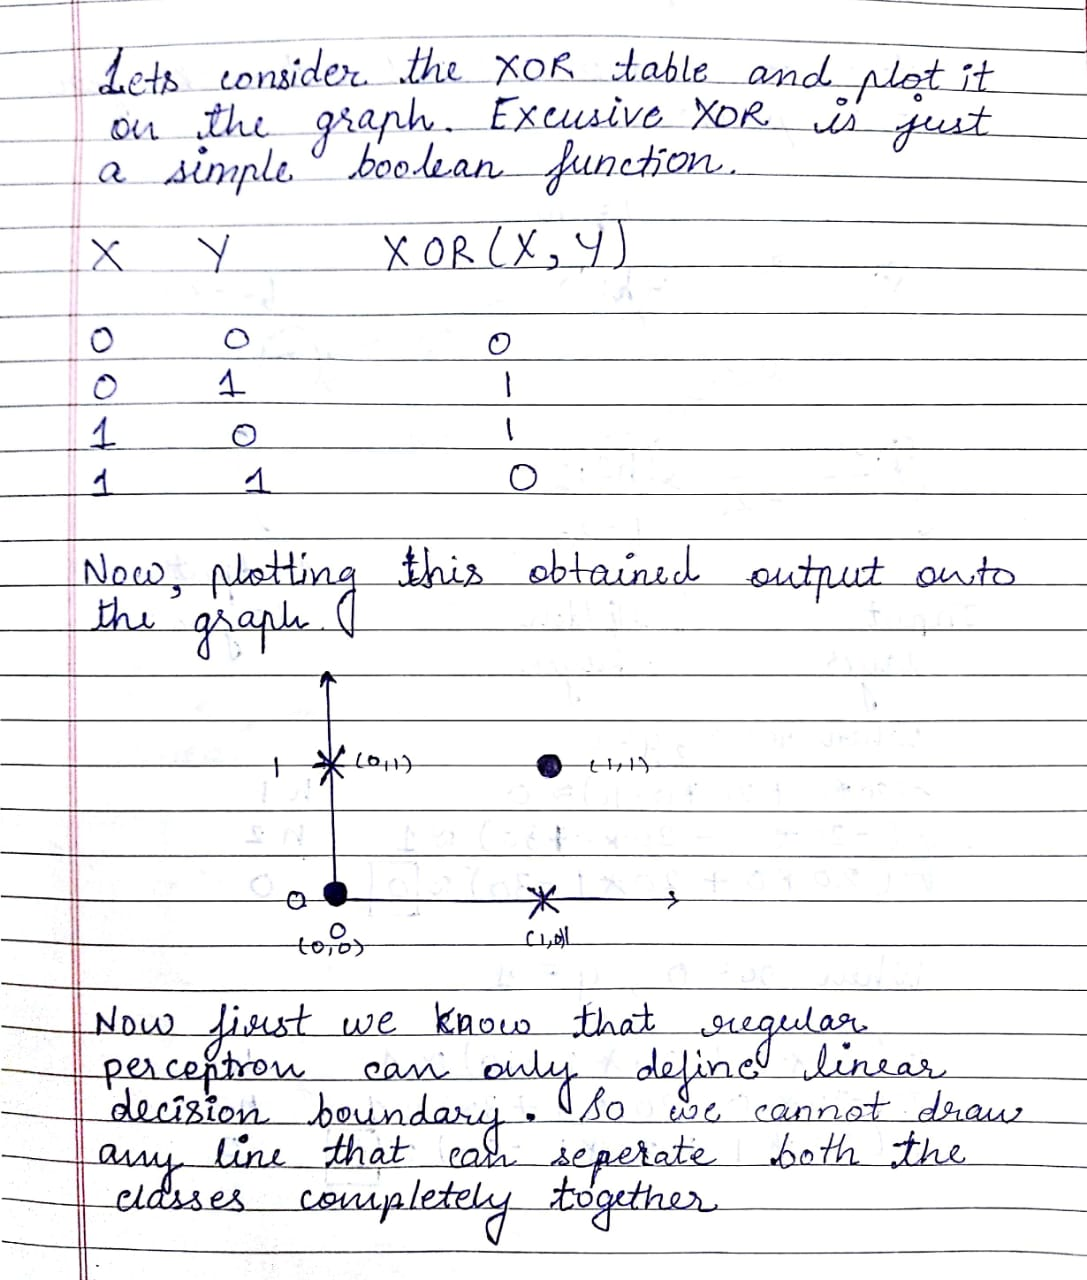 Lets consider the XOR table and plot it
on the graph. Excusive XOR is just
a simple boolean function.
X Y XOR(X, Y)
0 0 0
0 1 1
1 0 1
1 1 0
Now, plotting this obtained output onto
the graph.
1 (0,1) (1,1)
0
0
(0,0) (1,0)
Now first we know that regular
perceptron can only define linear
decision boundary. So we cannot draw
any line that can seperate both the
classes completely together